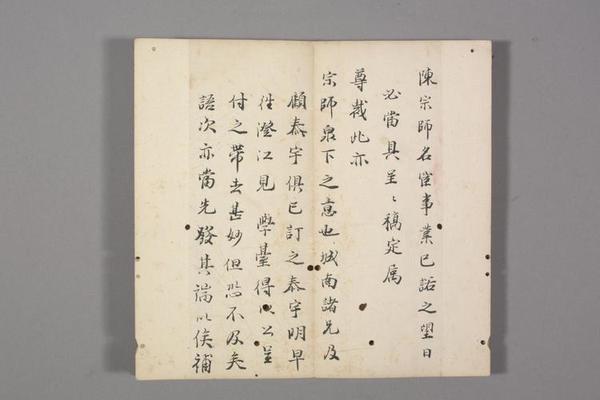 陳宗師名宦事業已詣之望日
必當具呈〻稿定属
尊裁此亦
宗師泉下之意也城南諸兄及
顧泰宇俱已訂之泰宇明早
往澄江見學臺得以公呈
付之帶去甚妙但恐不及矣
語次亦當先發其端以俟補